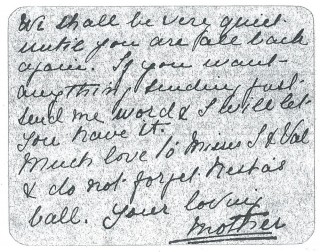 We shall be very quiet
until you are all back
again. If you want
anything sending just
send me word & I will let
you have it.
Much love to Mims I & Val
& do not forget Nesta's
ball. Your loving
Mother